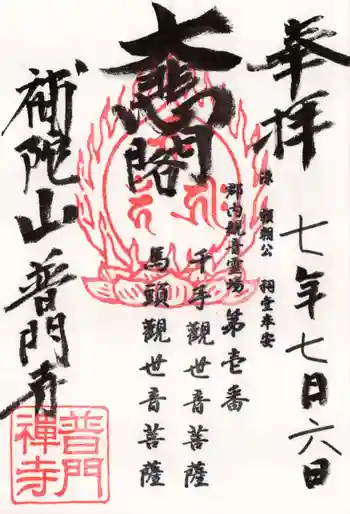 奉拝
七年七月六日
源頼朝公 祠堂奉安
大悲閣
郡内観音霊場第壱番
千手觀世音菩薩
馬頭觀世音菩薩
補陀山
普門寺
普門禅寺